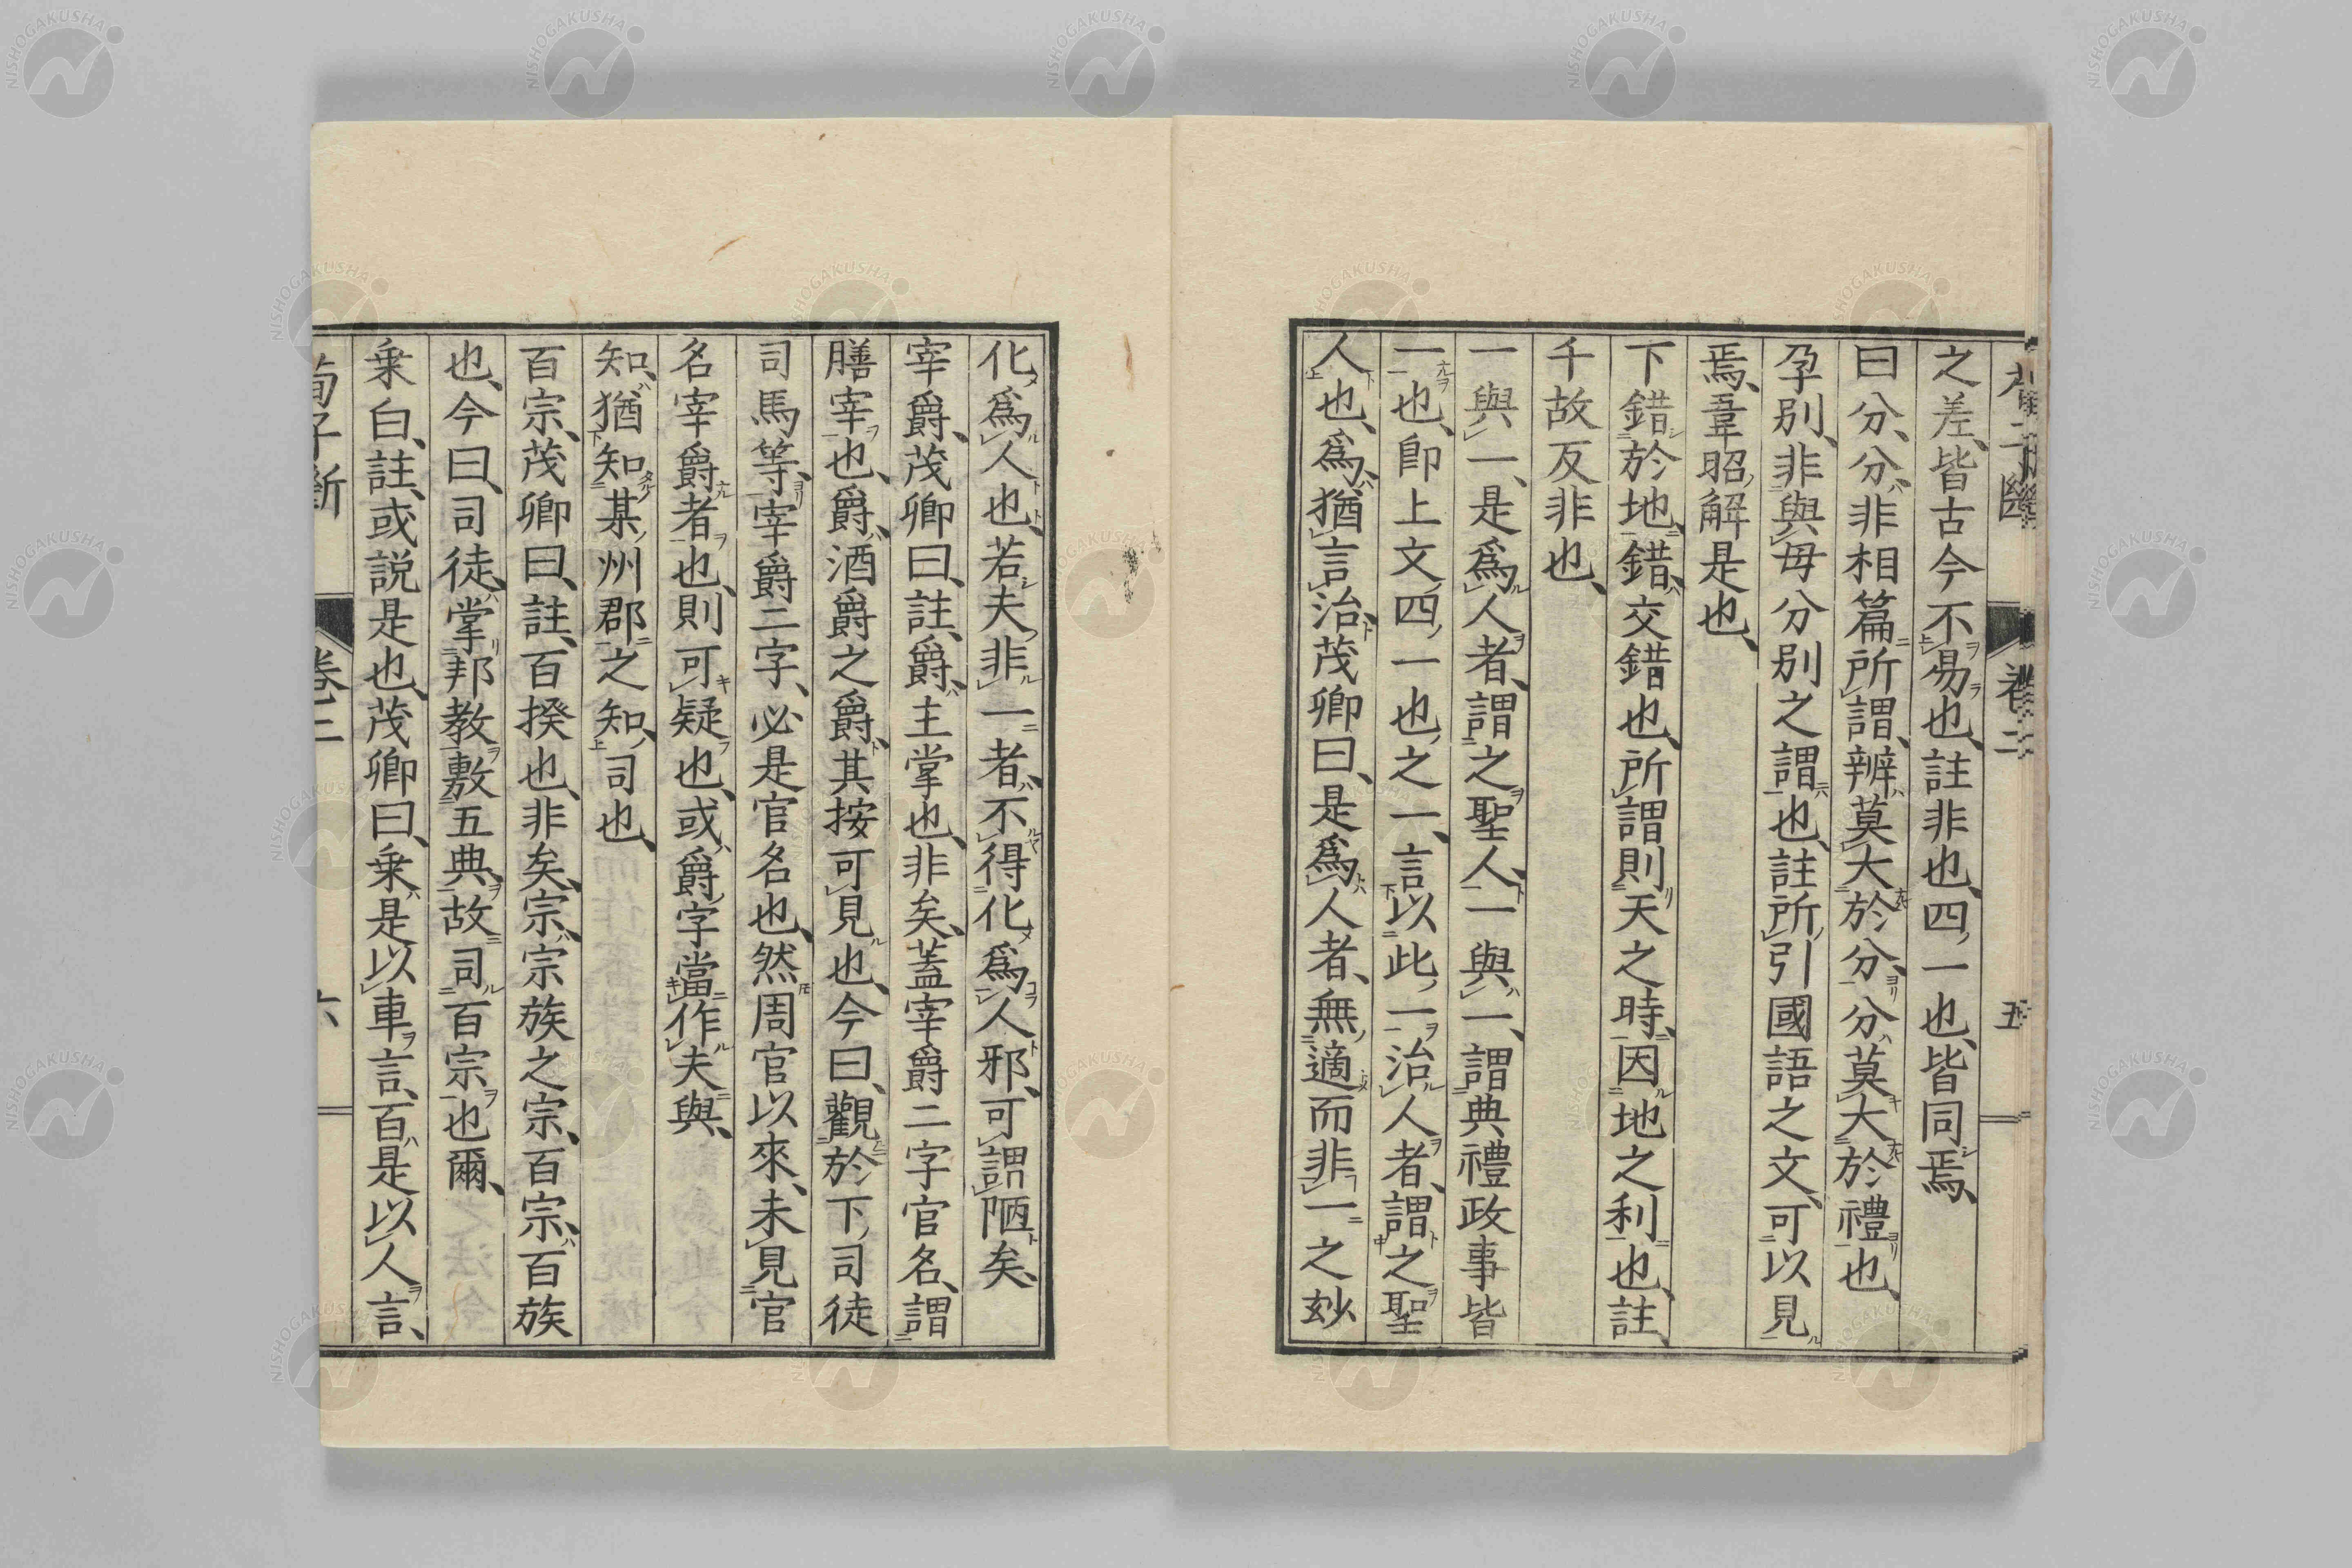 之差、皆古今不易也、註非也、四、一也、皆同焉、
曰分、分、非相篇所謂、辨莫大於分、分莫大於禮也、
孕別、非與毋分別之謂也、註所引國語之文、可以見
焉、韋昭解是也、
下錯於地、錯、交錯也、所謂則天之時、因地之利也、註、
千故反非也、
一與一、是爲人者、謂之聖人、一與一、謂典禮政事皆
一也、卽上文、四、一也、之一、言以此一治人者、謂之聖
人也、爲、猶言治、茂卿曰、是爲人者、無適而非一之玅
化爲人也、若夫非一者、不得化爲人邪、可謂陋矣、
宰爵、茂卿曰、註、爵、主掌也、非矣、蓋宰爵二字官名、謂
膳宰也、爵、酒爵之爵、其按可見也、今曰、觀於下、司徒
司馬等、宰爵二字、必是官名也、然周官以來、未見官
名宰爵者也、則可疑也、或爵字當作夫與、
知、猶知某州郡之知、司也、
百宗、茂卿曰、註、百揆也、非矣、宗、宗族之宗、百宗、百族
也、今曰、司徒、掌邦教敷五典、故司百宗也爾、
乗白、註、或説是也、茂卿曰、乗、是以車言、百是以人言、
荀子斷 卷二 六
NISHOGAKUSHA